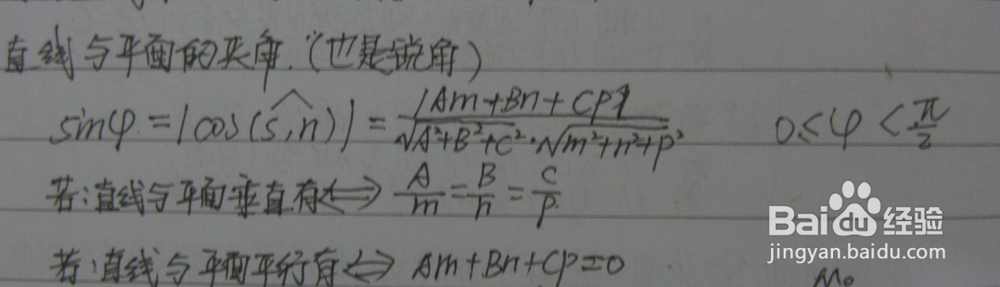 直线与平面的夹角.(也是锐角)
sinφ=|cos(s,n)|=|Am+Bn+Cp|/√A²+B²+C²·√m²+n²+p² 0≤φ<π/2
若:直线与平面垂直有⇔ A/m=B/n=C/p
若:直线与平面平行有⇔ Am+Bn+Cp=0
M₀
Baidu经验
jingyan.baidu.com